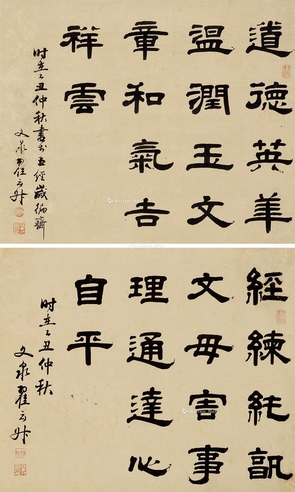 道德英華
溫潤玉文
章和氣吉
祥雲
时在乙丑仲秋書於五經歲徧齋
文泉翟云升
經練訓
文毋害事
理通達心
自平
时在乙丑仲秋
文泉翟云升